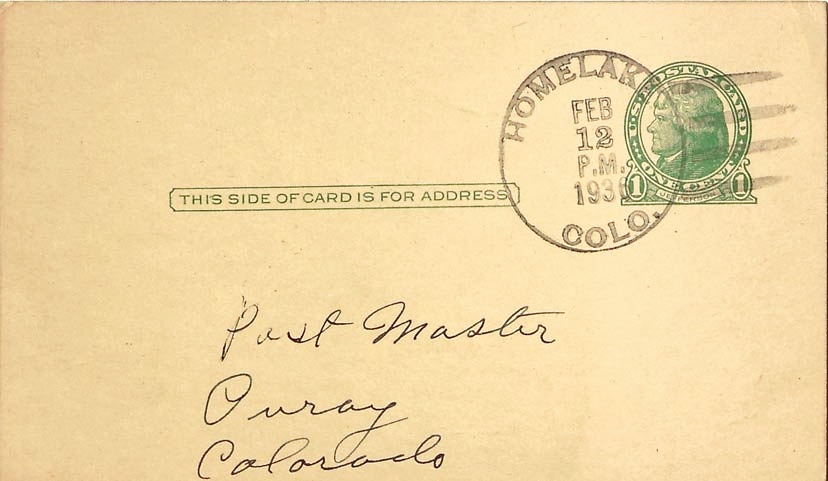 HOMELAKE
FEB
12
P.M.
193
COLO.
U.S. POSTAL CARD
1 ONE CENT 1
JEFFERSON
THIS SIDE OF CARD IS FOR ADDRESS
Post Master
Ouray
Colorado